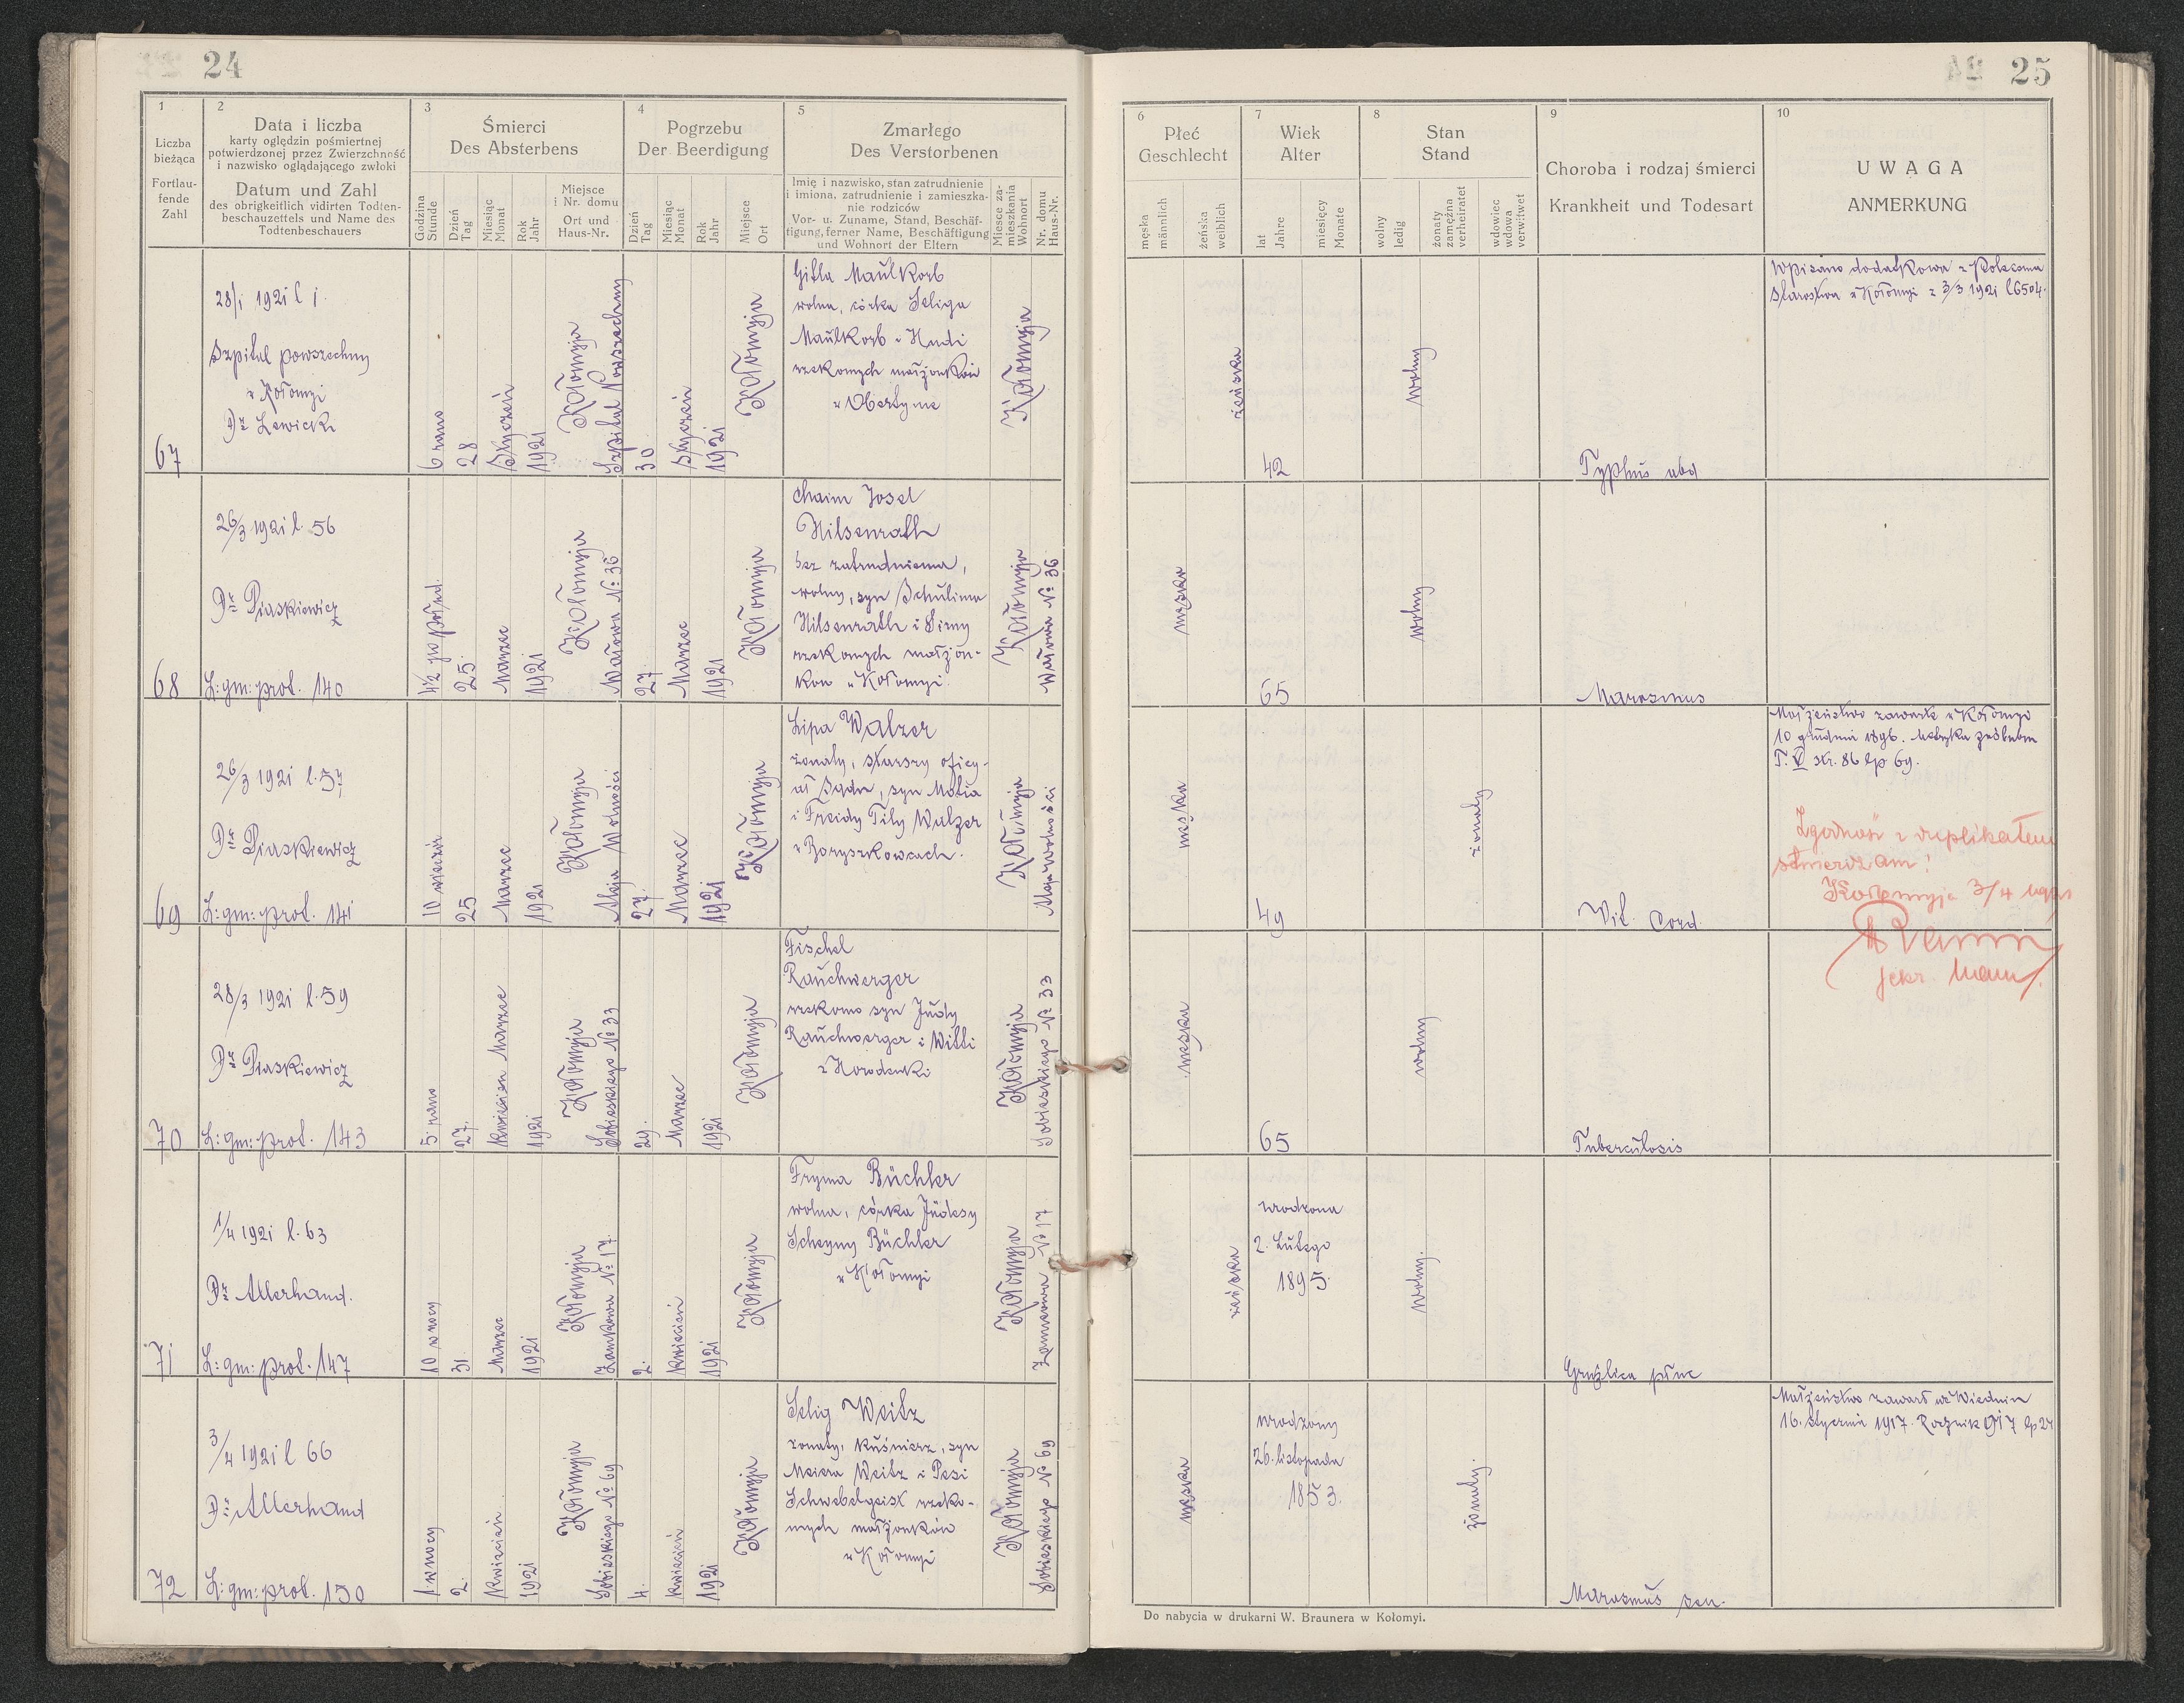 24
1
Liczba
bieżąca
Fortlau-
fende
Zahl
2
Data i liczba
karty oględzin pośmiertnej
potwierdzonej przez Zwierzchność
i nazwisko oglądającego zwłoki
Datum und Zahl
des obrigkeitlich vidirten Todten-
beschauzettels und Name des
Todtenbeschauers
3
Śmierci
Des Absterbens
Godzina
Stunde
Dzień
Tag
Miesiąc
Monat
Rok
Jahr
Miejsce
i Nr. domu
Ort und
Haus-Nr.
4
Pogrzebu
Der Beerdigung
Dzień
Tag
Miesiąc
Monat
Rok
Jahr
Miejsce
Ort
5
Zmarłego
Des Verstorbenen
Imię i nazwisko, stan zatrudnienie
i imiona, zatrudnienie i zamieszka-
nie rodziców
Vor- u. Zuname, Stand, Beschäf-
tigung, ferner Name, Beschäftigung
und Wohnort der Eltern
Miesce za-
mieszkania
Wohnort
Nr. domu
Haus-Nr.
67
28/1 1921 l 1.
Szpital powszechny
w Kołomyi
Dr Lewicki
6 rano
28
Styczeń
1921
Kołomyja
Szpital Powszechny
30
Styczeń
1921
Kołomyja
Gitla Maulkorb
wolna, córka Seliga
Maulkorb i Hudi
rzekomych małżonków
w Obertynie
Kołomyja
68
26/3 1921 l. 56
Dr Piaskiewicz
L: gm: prot. 140
4½ po połud.
25.
Marzec
1921
Kołomyja
Wałowa № 36
27.
Marzec
1921
Kołomyja
Chaim Josel
Hilsenrath
bez zatrudnienia,
wolny, syn Schulima
Hilsenrath i Simy
rzekomych małżon-
ków w Kołomyi.
Kołomyja
Wałowa № 36
69
26/3 1921 l. 57
Dr Piaskiewicz
L: gm: prot. 141
10 wieczór
25
Marzec
1921
Kołomyja
Aleja Wolności
27.
Marzec
1921
Kołomyja
Lipa Walzer
żonaty, starszy oficy-
ał Sądu, syn Motia
i Freidy Tily Walzer
w Boryszkowcach.
Kołomyja
Aleja wolności
70
28/3 1921 l. 59
Dr Piaskiewicz
L: gm: prot. 143
5. rano
27.
Kwiecień Marzec
1921
Kołomyja
Sobieskiego № 33
29.
Marzec
1921
Kołomyja
Fischel
Rauchwerger
rzekomo syn Judy
Rauchwerger i Witti
z Horodenki
Kołomyja
Sobieskiego № 33
71
1/4 1921 l. 63
Dr Allerhand.
L: gm: prot. 147
10 w nocy
31.
Marzec
1921
Kołomyja
Zamkowa № 17.
2.
Kwiecień
1921
Kołomyja
Fryma Büchler
wolna, córka Judesy
Scheyny Büchler
w Kołomyi
Kołomyja
Zamkowa № 17
72
3/4 1921 l 66
Dr Allerhand
L: gm: prot. 150
1 w nocy
2.
Kwiecień
1921
Kołomyja
Sobieskiego № 69
4.
Kwiecień
1921
Kołomyja
Selig Weitz
żonaty, kuśnierz, syn
Meiera Weitz i Pesi
Schwebelgeist rzeko-
mych małżonków
w Kołomyi
Kołomyja
Sobieskiego № 69
25
6
Płeć
Geschlecht
męska
männlich
żeńska
weiblich
7
Wiek
Alter
lat
Jahre
miesięcy
Monate
8
Stan
Stand
wolny
ledig
żonaty
zamężna
verheiratet
wdowiec
wdowa
verwitwet
9
Choroba i rodzaj śmierci
Krankheit und Todesart
10
UWAGA
ANMERKUNG
żeńska
42
wolny
Typhus abd
Wpisano dodatkowo z Polecenia
Starostwa w Kołomyi z 3/3 1921 l 6504.
męska
65
wolny
Marasmus
męska
49
żonaty
Vit. Cord.
Małżeństwo zawarte w Kołomyi
10 grudnia 1896. Metryka ślubna
T. V str. 86 lp 69.
Zgodność z duplikatem
stwierdzam!
Kołomyja 3/4
męska
65
wolny
Tuberculosis
żeńska
urodzona
2. Lutego
1895.
Wolny.
Gruźlica płuc
męska
urodzony
26. listopada
1853.
żonaty.
Marasmus sen.
Małżeństwo zawarł we Wiedniu
16. Stycznia 1917. Rocznik 1917 lp 24
Do nabycia w drukarni W. Braunera w Kołomyi.